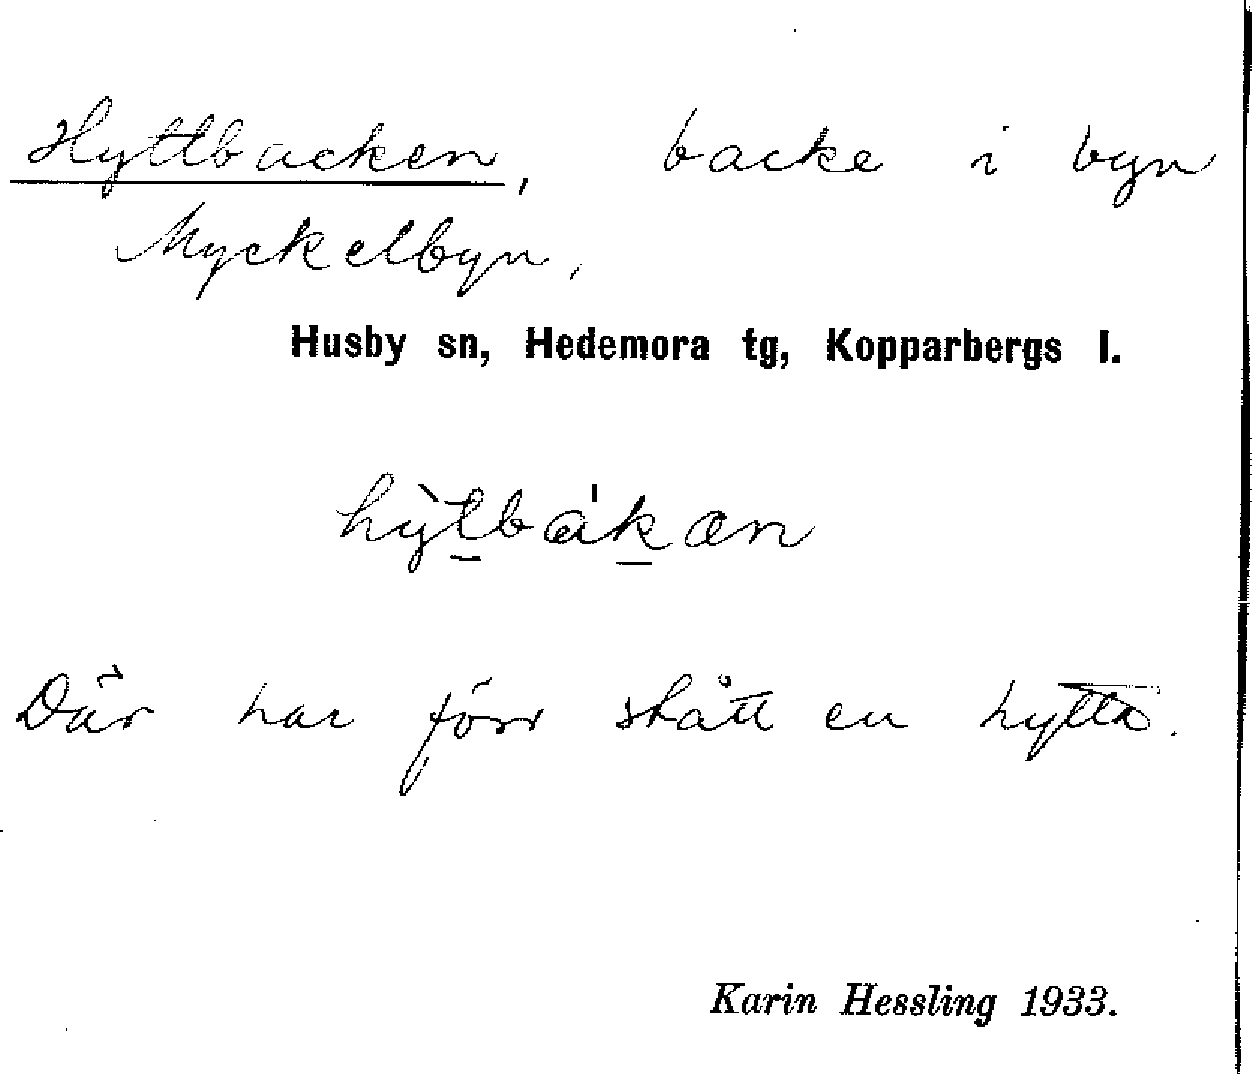 Hyttbacken, backe i byn
Myckelbyn,
Husby sn, Hedemora tg, Kopparbergs l.
hỳt̠bák̠an
Där har förr stått en hytta.
Karin Hessling 1933.